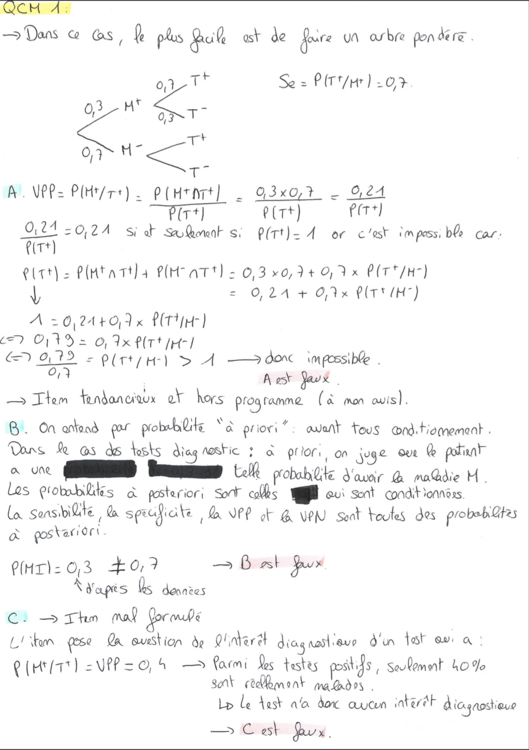 QCM 1:
→ Dans ce cas, le plus facile est de faire un arbre pondéré.
0,7 T+
Se = P(T+/M+) = 0,7.
0,3 M+
0,3 T-
0,7 M-
T+
T-
A. VPP = P(M+/T+) = P(M+∩T+)/P(T+) = 0,3×0,7/P(T+) = 0,21/P(T+)
0,21/P(T+) = 0,21 si et seulement si P(T+) = 1 or c'est impossible car:
P(T+) = P(M+∩T+) + P(M-∩T+) = 0,3×0,7 + 0,7× P(T+/M-)
= 0,21 + 0,7× P(T+/M-)
↓
1 = 0,21 + 0,7× P(T+/M-)
<=> 0,79 = 0,7× P(T+/M-)
<=> 0,79/0,7 = P(T+/M-) > 1 → donc impossible.
A est faux.
→ Item tendancieux et hors programme (à mon avis).
B. On entend par probabilité "à priori": avant tous conditionnement.
Dans le cas des tests diagnostic : à priori, on juge que le patient
a une telle probabilité d'avoir la maladie M.
Les probabilités à posteriori sont celles qui sont conditionnées.
La sensibilité, la spécificité, la VPP et la VPN sont toutes des probabilités
à posteriori.
P(MI) = 0,3 ≠ 0,7 → B est faux.
↑ d'après les données
C. → Item mal formulé
L'item pose la question de l'intérêt diagnostique d'un test qui a :
P(M+/T+) = VPP = 0,4 → Parmi les testés positifs, seulement 40%
sont réellement malades.
↳ Le test n'a donc aucun intérêt diagnostique
→ C est faux.